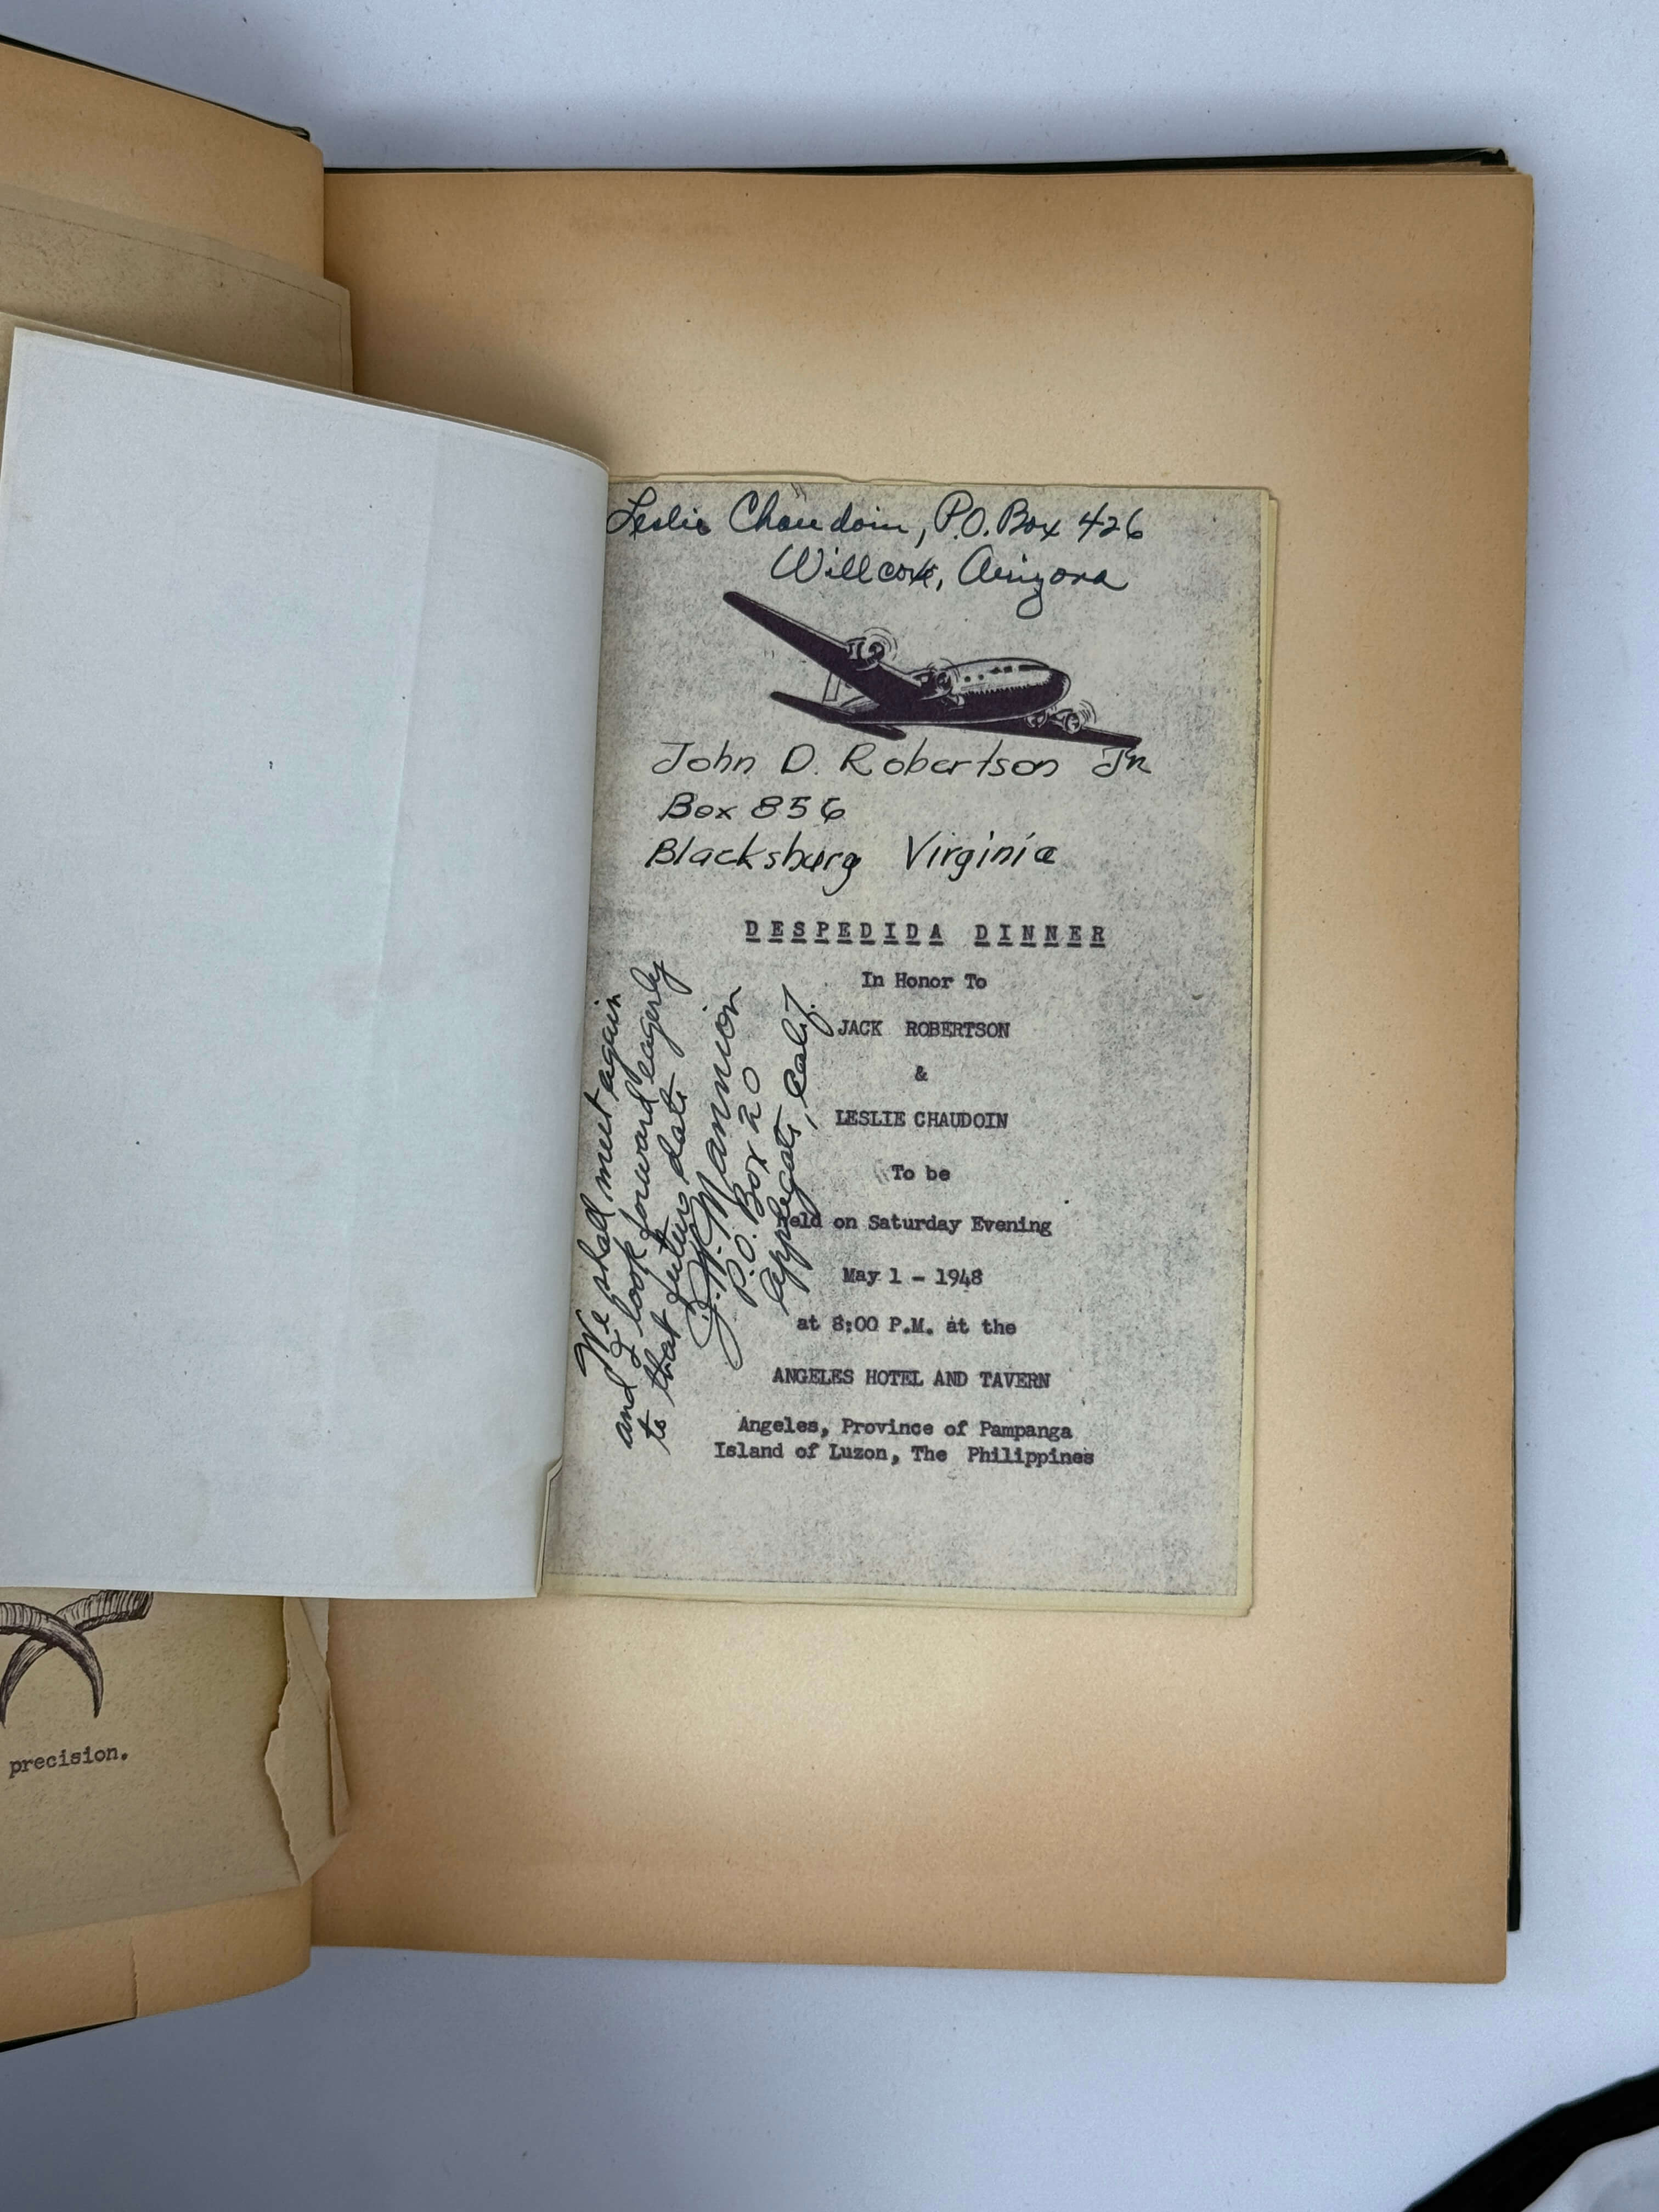 Leslie Chaudoin, P.O. Box 426
Willcox, Arizona
John D. Robertson Jr
Box 856
Blacksburg Virginia
DESPEDIDA DINNER
In Honor To
JACK ROBERTSON
&
LESLIE CHAUDOIN
To be
held on Saturday Evening
May 1 - 1948
at 8:00 P.M. at the
ANGELES HOTEL AND TAVERN
Angeles, Province of Pampanga
Island of Luzon, The Philippines
We shall meet again
and I look forward eagerly
to that future date
J.W. Mannion
P.O. Box 20
Applegate, Calif.
precision.